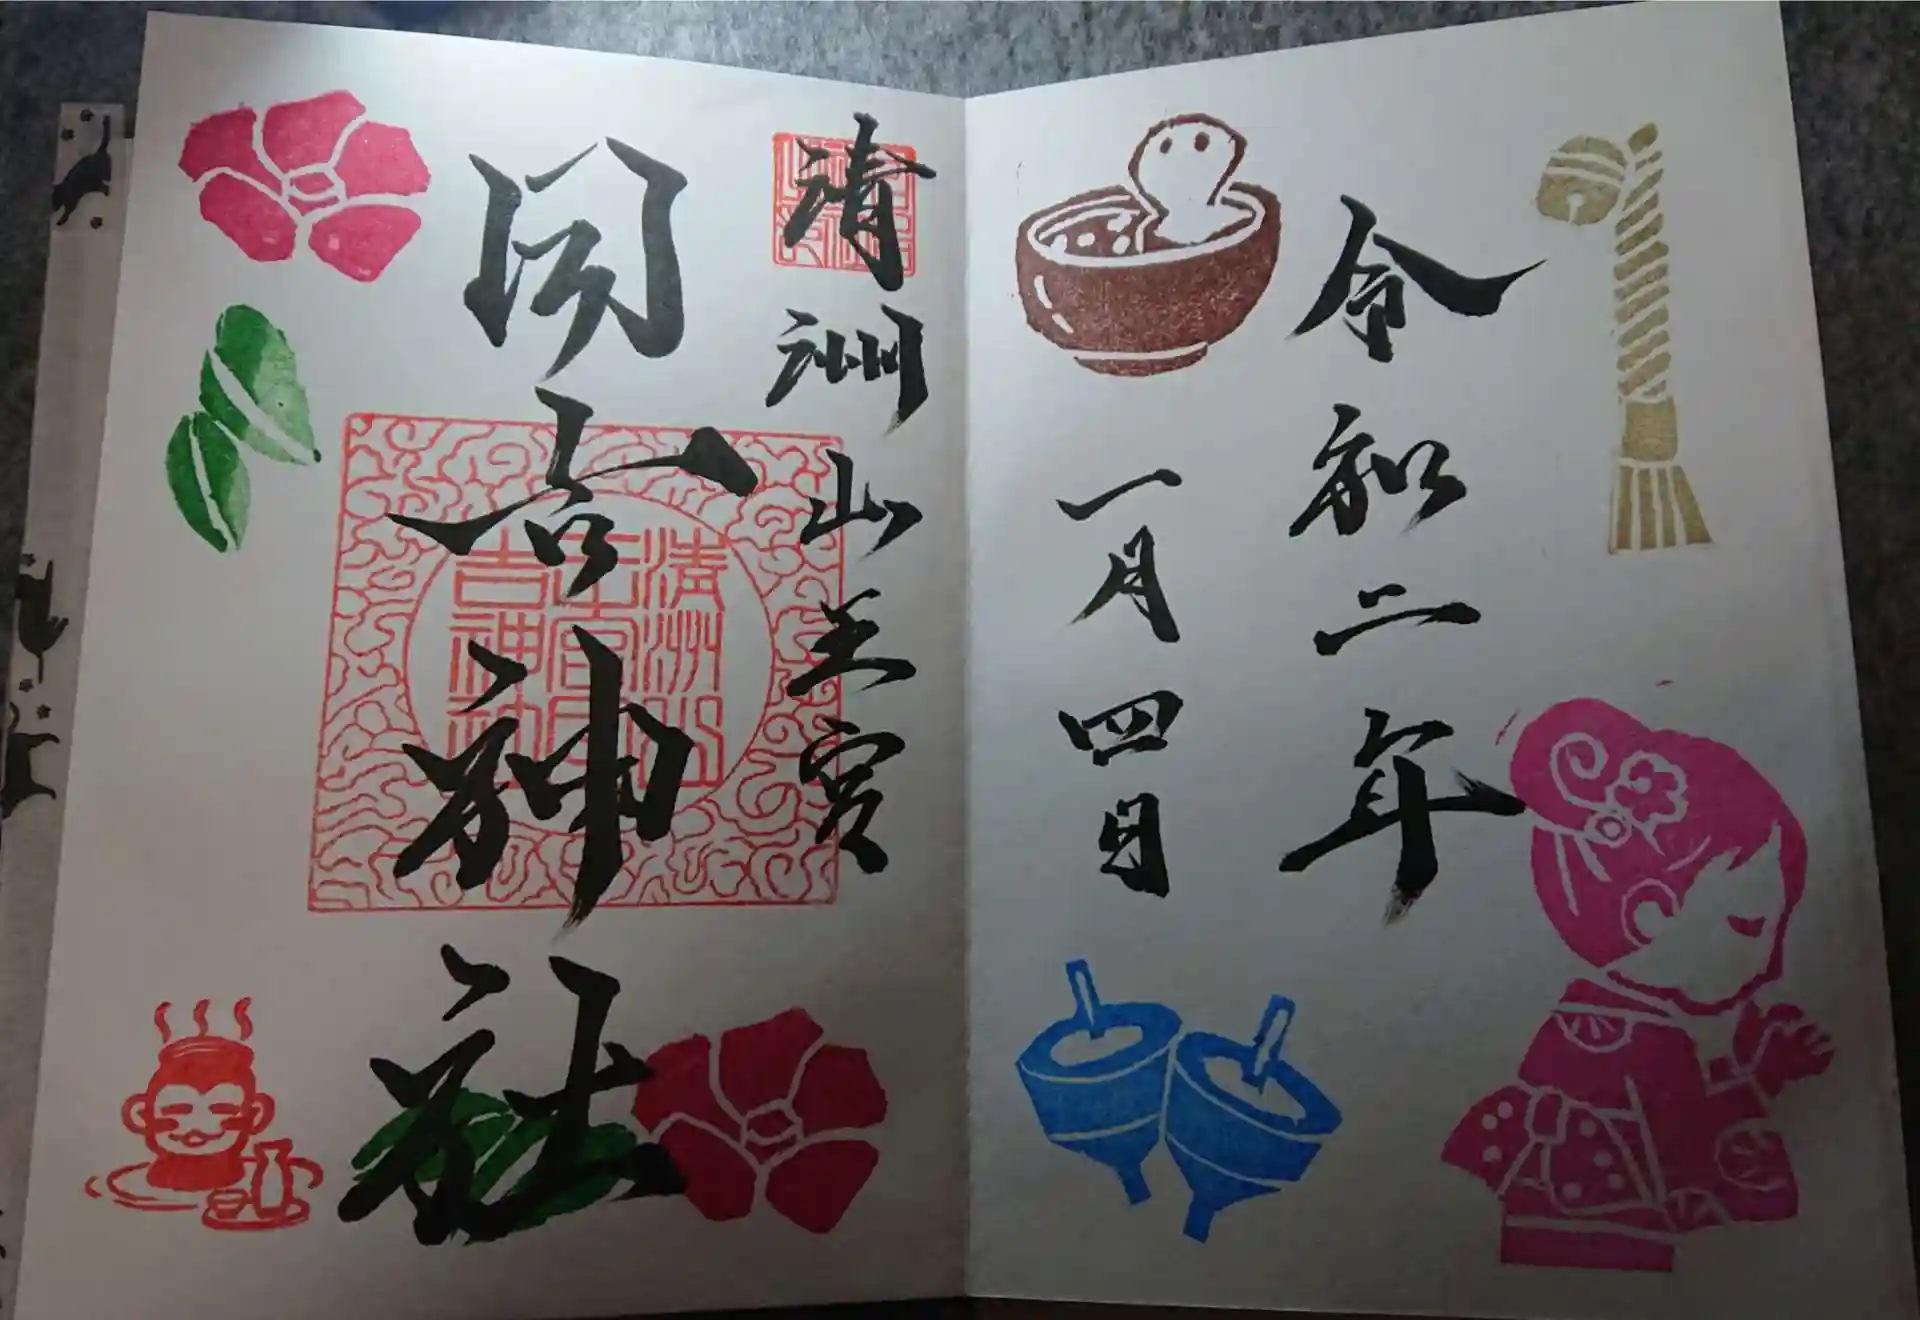 令和二年
一月四日
清洲山王宮
日吉神社
清洲山
王宮日
吉神社